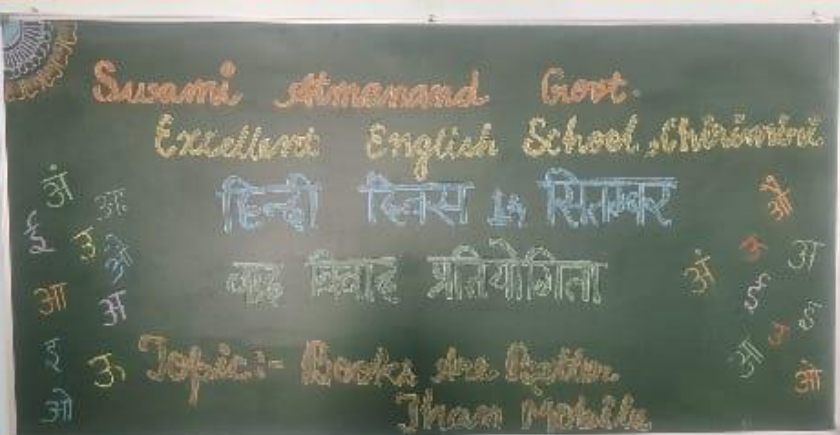 Swami Atmanand Govt.
Excellent English School, Chirimiri
हिन्दी दिवस 14 सितम्बर
वाद विवाद प्रतियोगिता
Topic:- Books Are Better
Than Mobile
अं
अः
ई
उ
ओ
आ
अ
इ
ऊ
ओ
औ
ऊ
अ
अं
ई
आ
ओ